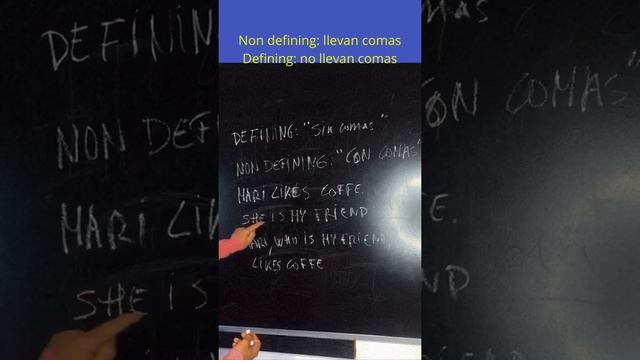 Non defining: llevan comas
Defining: no llevan comas
DEFINING: "Sin comas"
NON DEFINING: "CON COMAS"
MARI LIKES COFFE.
SHE IS MY FRIEND
MARI, WHO IS MY FRIEND,
LIKES COFFE